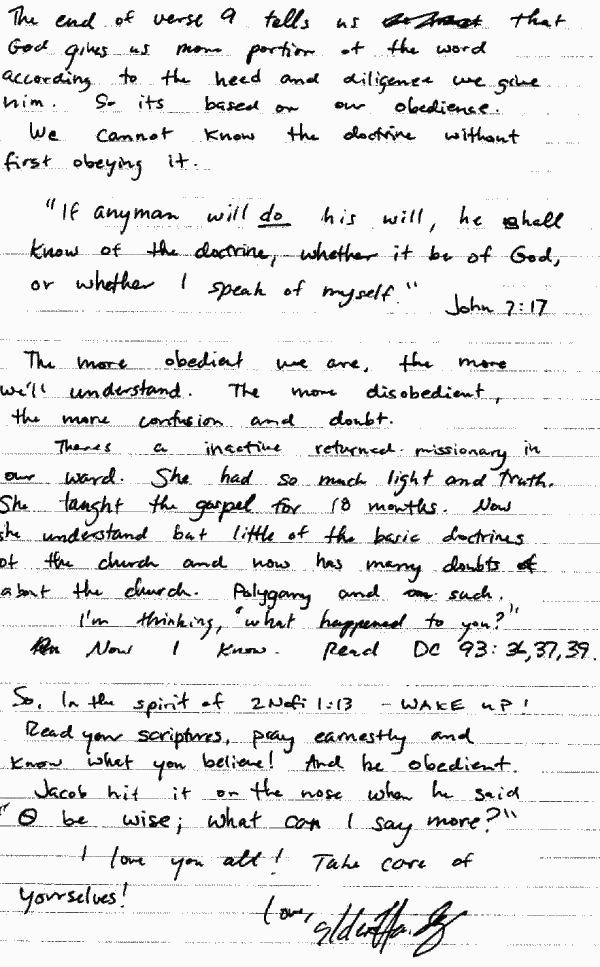 The end of verse 9 tells us that
God gives us more portion of the word
according to the heed and diligence we give
him. So its based on our obedience.
We cannot know the doctrine without
first obeying it.
"If anyman will do his will, he shall
know of the doctrine, whether it be of God,
or whether I speak of myself."
John 7:17
The more obedient we are, the more
we'll understand. The more disobedient,
the more confusion and doubt.
Theres a inactive returned missionary in
our ward. She had so much light and truth.
She taught the gospel for 18 months. Now
she understand but little of the basic doctrines
of the church and now has many doubts
about the church. Polygamy and such.
I'm thinking, "what happened to you?"
Now I know. Read DC 93:36,37,39.
So, In the spirit of 2 Nefi 1:13 - WAKE UP!
Read your scriptures, pray earnestly and
know what you believe! And be obedient.
Jacob hit it on the nose when he said
"O be wise; what can I say more?"
I love you all! Take care of
yourselves!
Love, Elder